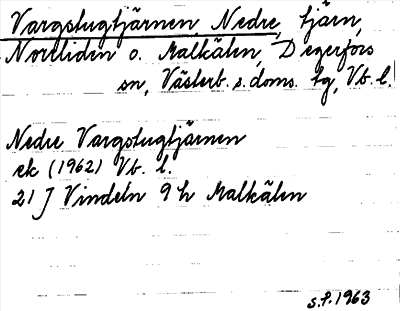 Vargstugtjärnen, Nedre, tjärn,
Norrliden o. Malkälen, Degerfors
sn, Västerb. s. doms. tg, Vb. l.
Nedre Vargstugtjärnen
ek (1962) Vb. l.
21 J Vindeln 9 h Malkälen
S.P. 1963